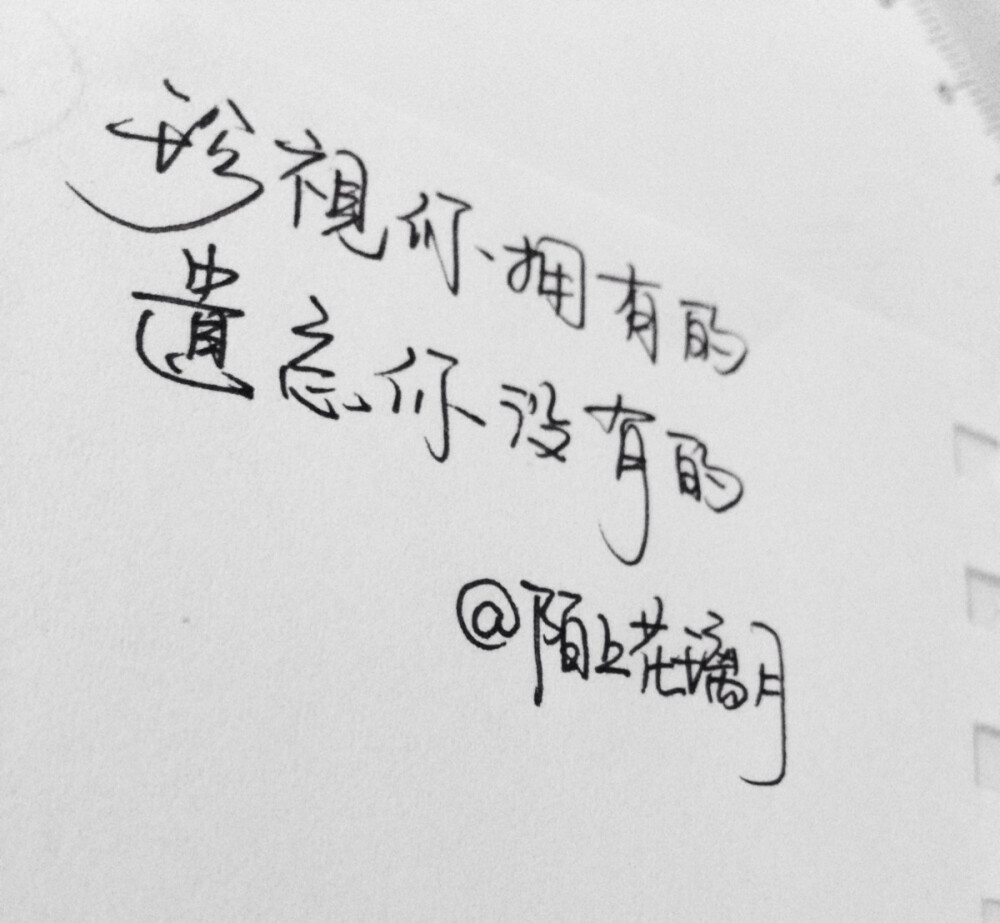 珍視你拥有的
遺忘你没有的
@陌上花璃月